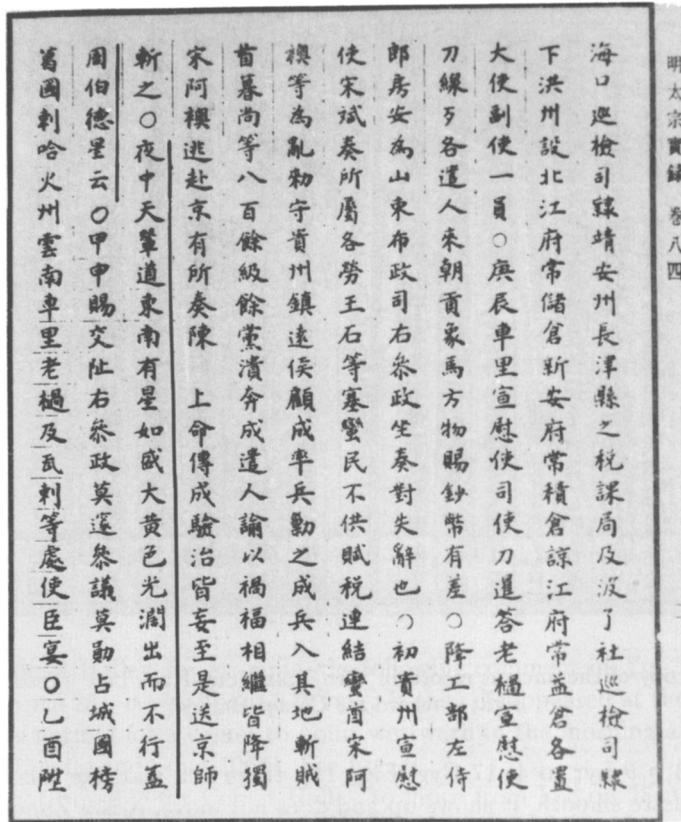 明太宗實録 卷八四
海口巡檢司隸靖安州長津縣之稅課局及淰了社巡檢司隸
下洪州設北江府常儲倉新安府常積倉諒江府常盈倉各置
大使副使一員○庚辰車里宣慰使司使刀暹答老撾宣慰使
刀線歹各遣人來朝貢象馬方物賜鈔幣有差○降 部左侍
郎房安為山東布政司右叅政坐奏對失辭也○初貴州宣慰
使宋斌奏所屬各勞王石等寨蠻民不供賦稅連結蠻酋宋阿
襖等為亂勑守貴州鎮遠侯顧成率兵勦之成兵入其地斬賊
首暮尚等八百餘級餘黨潰奔成遣人諭以禍福相繼皆降獨
宋阿襖逃赴京有所奏陳 上命傳成驗治皆妄至是送京師
斬之○夜中天輦道東南有星如盛大黃色光潤出而不行蓋
周伯德星云○甲申賜交阯右叅政莫邃叅議莫勛占城國榜
葛國剌哈火州雲南車里老撾及瓦剌等處使臣宴○乙酉陞